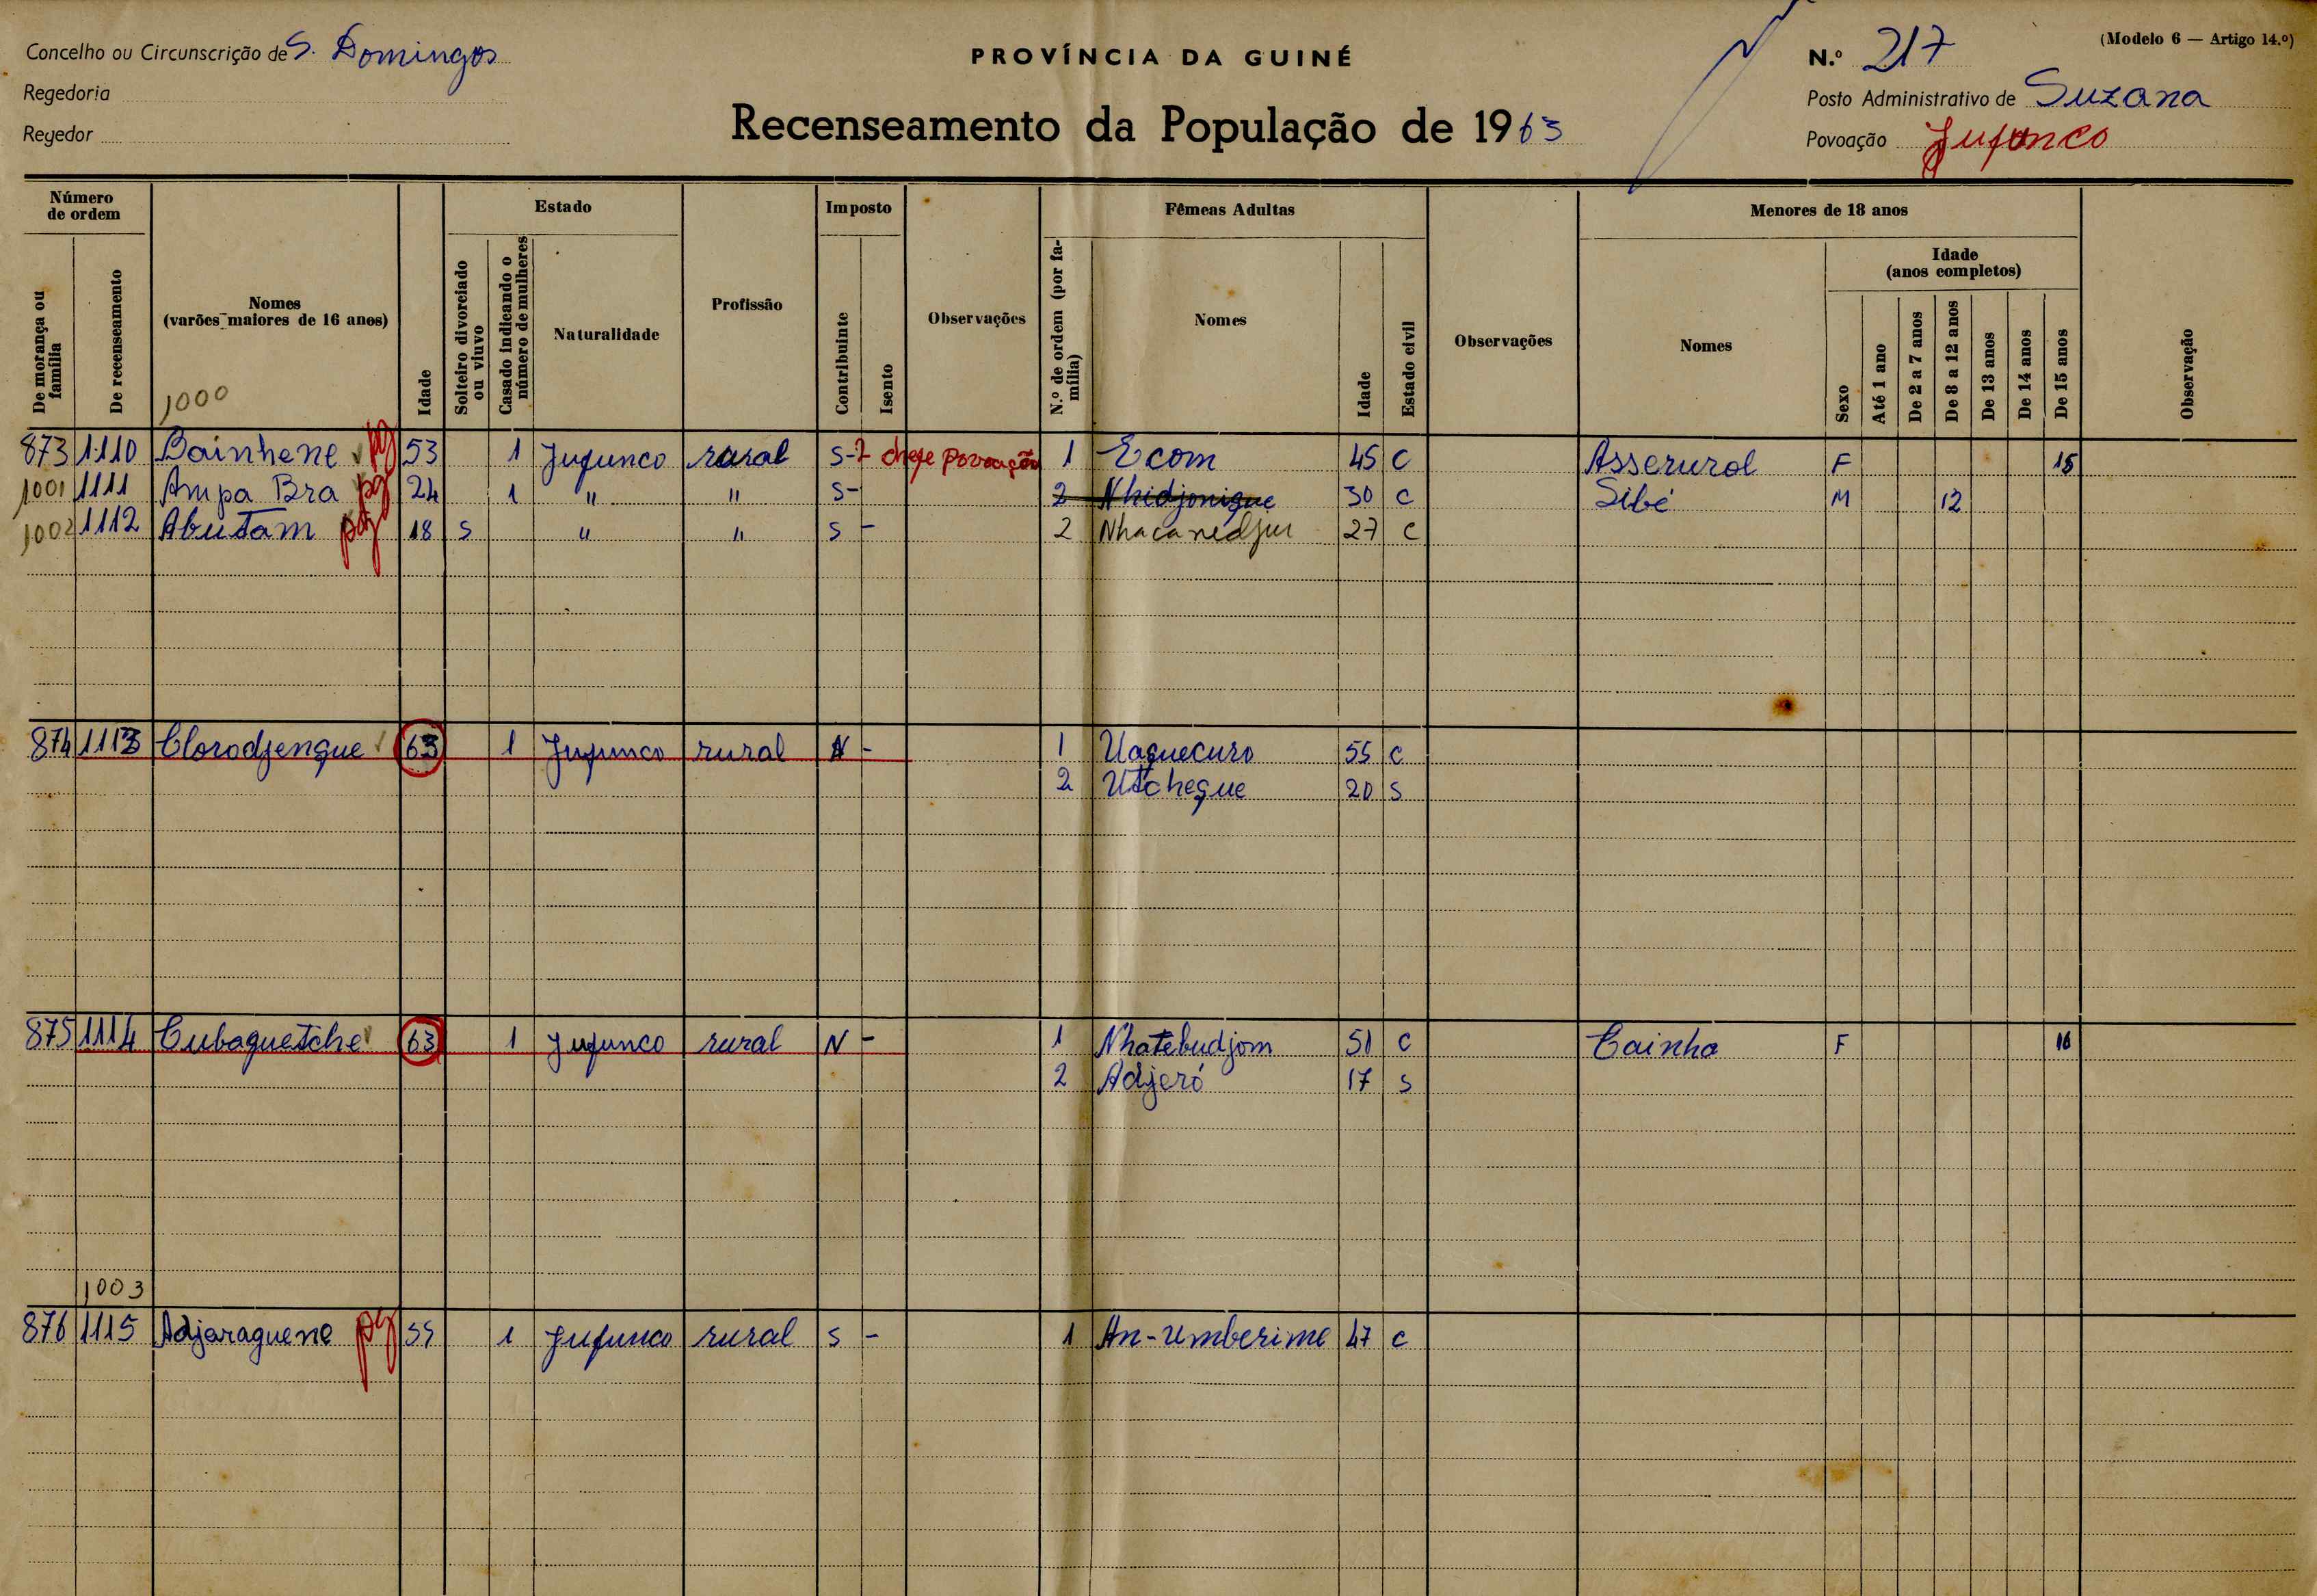 Concelho ou Circunscrição de S. Domingos
PROVÍNCIA DA GUINÉ
N.º 217
(Modelo 6 — Artigo 14.º)
Regedoria
Posto Administrativo de Suzana
Regedor
Recenseamento da População de 1963
Povoação Jufunco
Número de ordem
Estado
Imposto
Fêmeas Adultas
Menores de 18 anos
De morança ou família
De recenseamento
Nomes (varões maiores de 16 anos)
Idade
Solteiro divorciado ou viuvo
Casado indicando o número de mulheres
Naturalidade
Profissão
Contribuinte
Isento
Observações
N.º de ordem (por família)
Nomes
Idade
Estado civil
Observações
Nomes
Sexo
Idade (anos completos)
Até 1 ano
De 2 a 7 anos
De 8 a 12 anos
De 13 anos
De 14 anos
De 15 anos
Observação
1000
873 1110 Bainhene pg 53 1 Jufunco rural S - chefe povoação 1 Ecom 45 C Asserural F 15
1001 1111 Ampa Bra pg 24 1 " " S - 2 Nhidjonique 30 C Sibé M 12
1002 1112 Abutam pg 18 S " " S - 2 Nhacanedjur 27 C
874 1113 Clorodjengue 63 1 Jufunco rural N - 1 Uaguecuro 55 C
2 Utchegue 20 S
875 1114 Cubaguetche 63 1 Jufunco rural N - 1 Nhatebudjom 51 C Cainha F 16
2 Adjeró 17 S
1003
876 1115 Adjaraguene pg 55 1 Jufunco rural S - 1 An-umberime 47 C